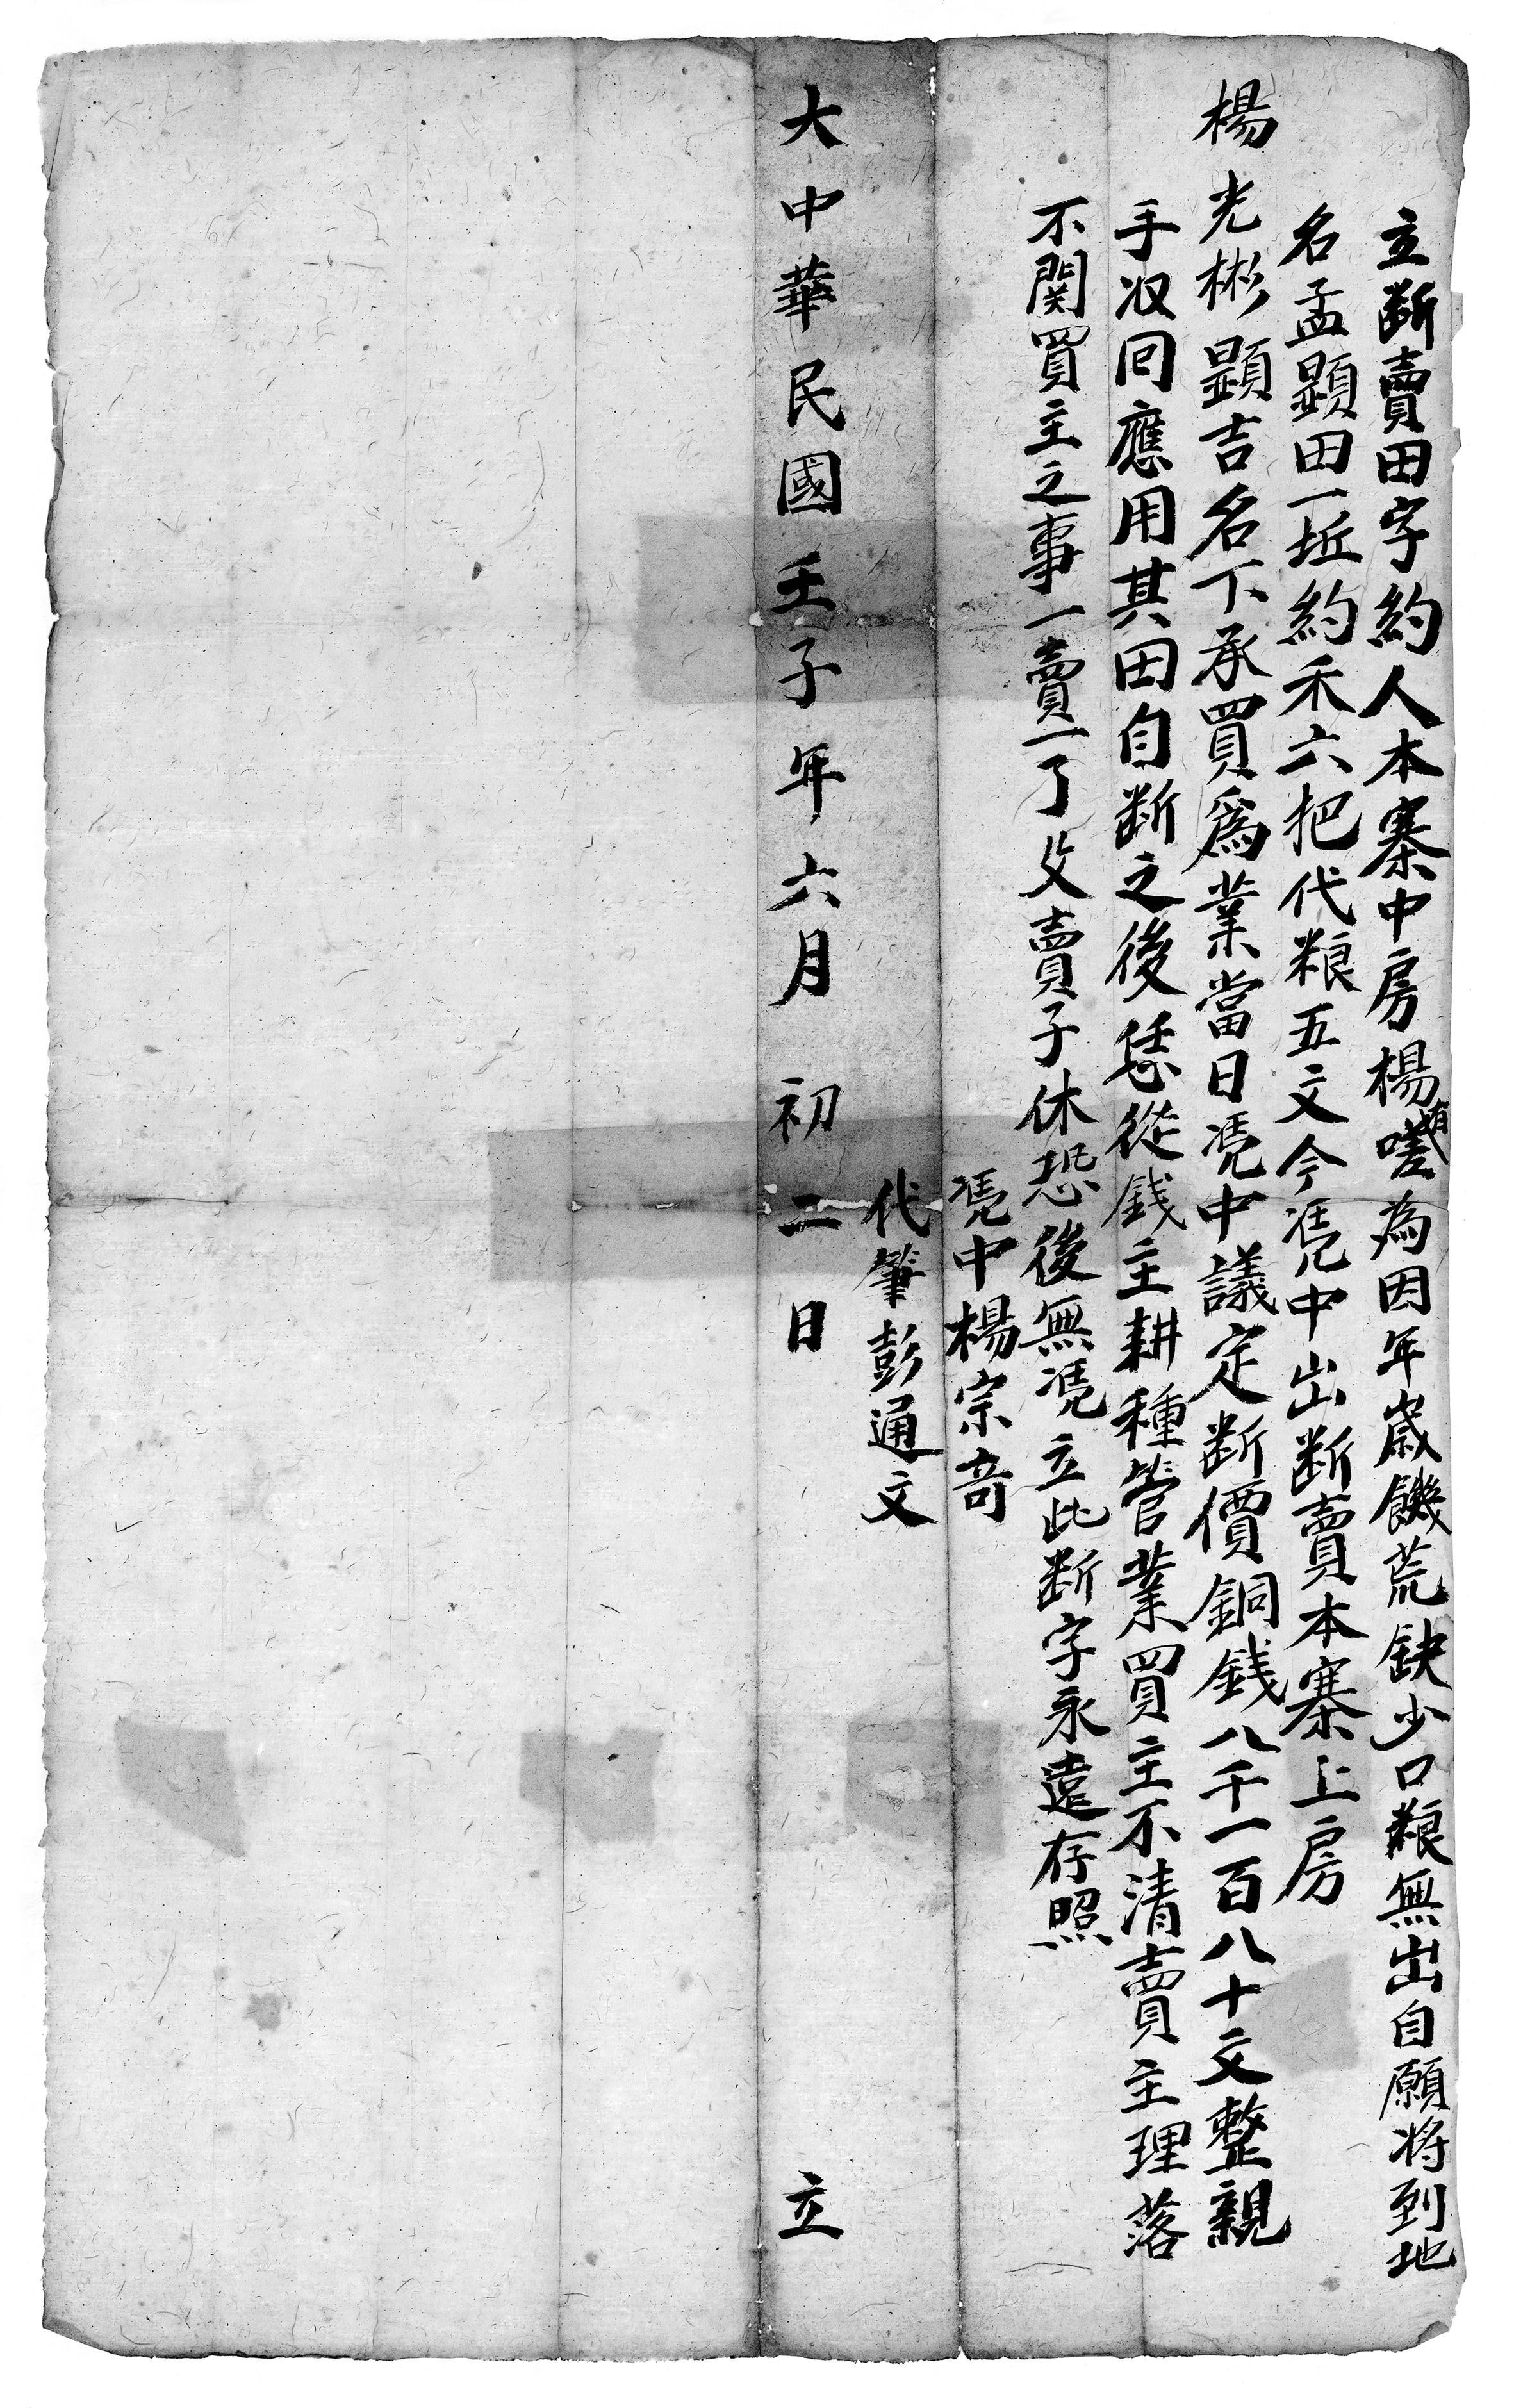 立断賣田字約人本寨中房楊有嗟為因年歲饑荒缺少口粮無出自願将到地
名孟顕田一坵約禾六把代粮五文今凴中出断賣本寨上房
楊光彬顕吉名下承買為業當日凴中議定断價銅錢八千一百八十文整親
手収回應用其田自断之後恁從錢主耕種管業買主不清賣主理落
不関買主之事一賣一了父賣子休恐後無凴立此断字永遠存照
凴中楊宗竒
代筆彭通文
大中華民國壬子年六月初二日立